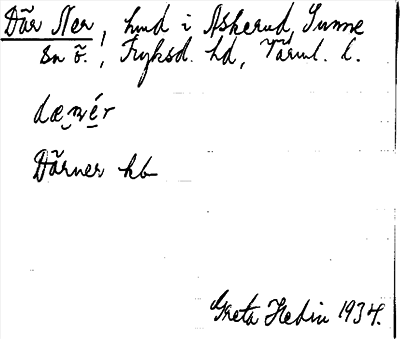 Där Ner, hmd i Askerud, Sunne
sn ö., Fryksd. hd, Värml. l.
dæṇér
Därner kb
Greta Hedin 1934.